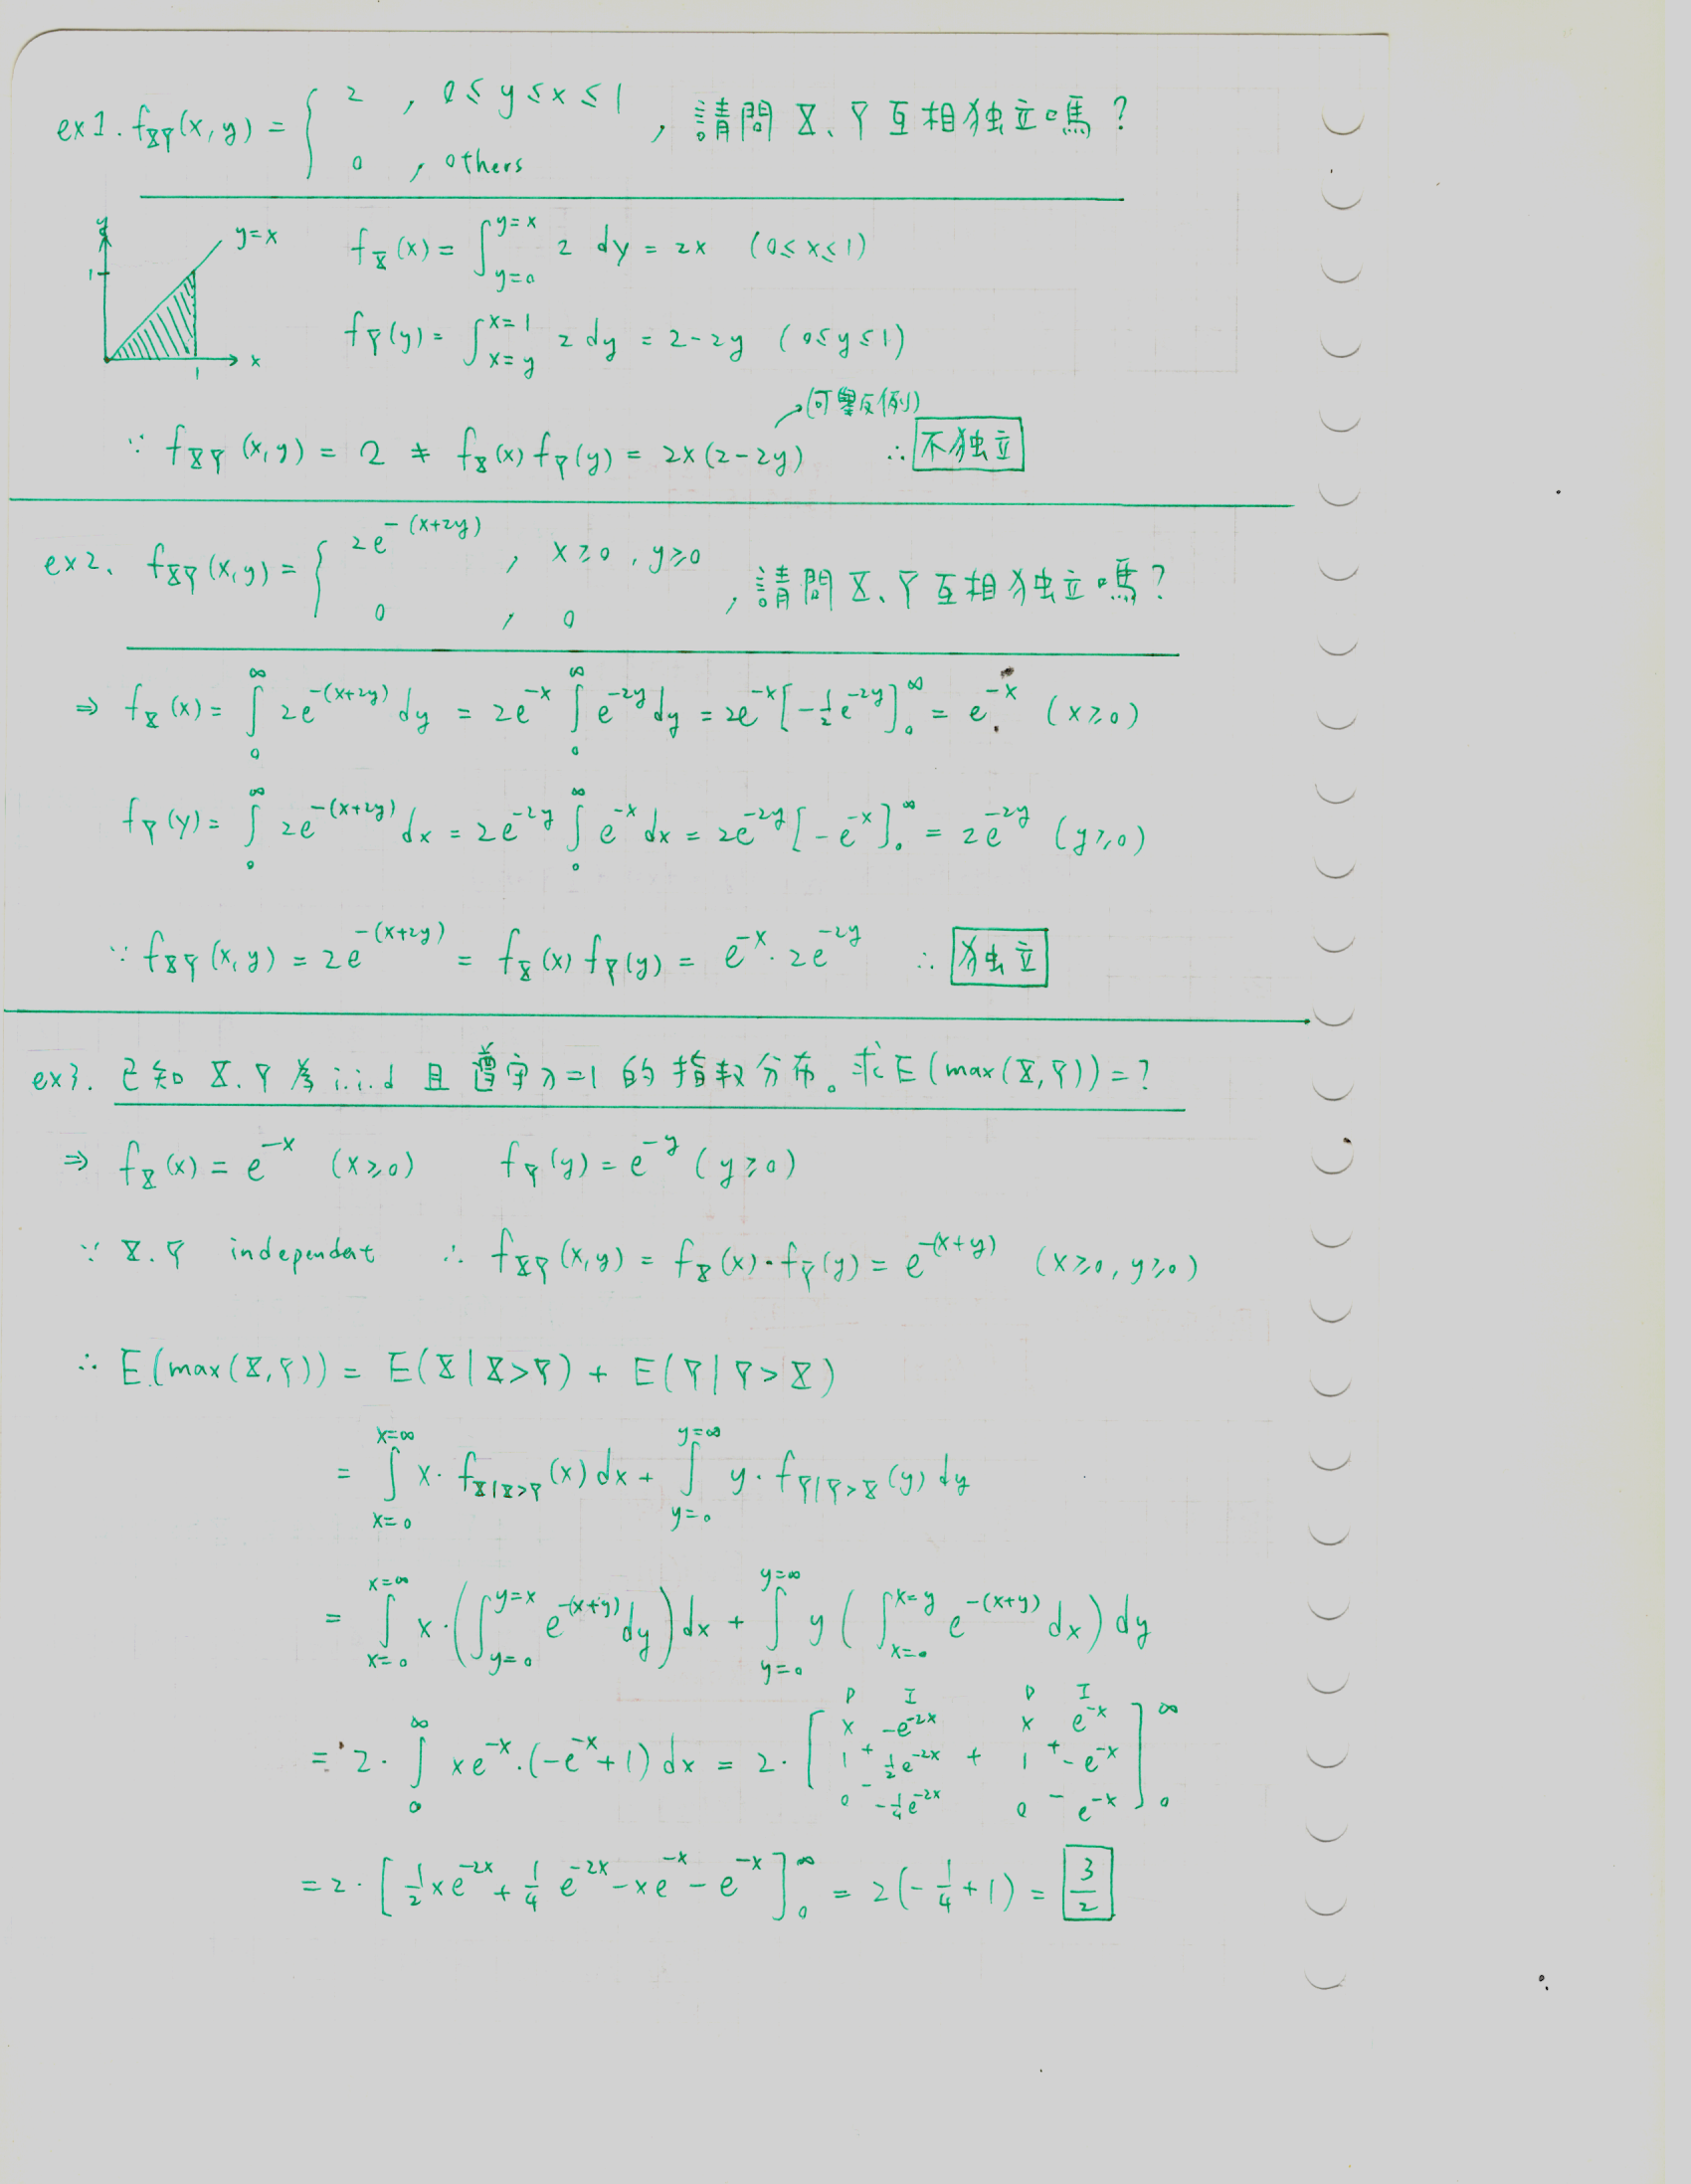 ex1. fXY(x,y) = { 2 , 0 ≤ y ≤ x ≤ 1
0 , others
, 請問 X、Y 互相独立嗎?
y
y=x
1
x
1
fX(x) = ∫_{y=0}^{y=x} 2 dy = 2x (0≤x≤1)
fY(y) = ∫_{x=y}^{x=1} 2 dy = 2-2y (0≤y≤1)
(可舉反例)
∵ fXY(x,y) = 2 ≠ fX(x) fY(y) = 2x(2-2y) ∴ 不独立
ex2. fXY(x,y) = { 2e^{-(x+2y)} , x≥0, y≥0
0 , 0
, 請問 X、Y 互相独立嗎?
⇒ fX(x) = ∫_0^∞ 2e^{-(x+2y)} dy = 2e^{-x} ∫_0^∞ e^{-2y} dy = 2e^{-x} [-1/2 e^{-2y}]_0^∞ = e^{-x} (x≥0)
fY(y) = ∫_0^∞ 2e^{-(x+2y)} dx = 2e^{-2y} ∫_0^∞ e^{-x} dx = 2e^{-2y} [-e^{-x}]_0^∞ = 2e^{-2y} (y≥0)
∵ fXY(x,y) = 2e^{-(x+2y)} = fX(x) fY(y) = e^{-x} · 2e^{-2y} ∴ 独立
ex3. 已知 X.Y 為 i.i.d 且遵守 λ=1 的指数分布。求 E(max(X,Y)) = ?
⇒ fX(x) = e^{-x} (x≥0) fY(y) = e^{-y} (y≥0)
∵ X.Y independent ∴ fXY(x,y) = fX(x)·fY(y) = e^{-(x+y)} (x≥0, y≥0)
∴ E(max(X,Y)) = E(X|X>Y) + E(Y|Y>X)
= ∫_{x=0}^{x=∞} x · f_{X|X>Y}(x) dx + ∫_{y=0}^{y=∞} y · f_{Y|Y>X}(y) dy
= ∫_{x=0}^{x=∞} x · (∫_{y=0}^{y=x} e^{-(x+y)} dy) dx + ∫_{y=0}^{y=∞} y (∫_{x=0}^{x=y} e^{-(x+y)} dx) dy
D I D I
x -e^{-2x} x e^{-x}
= 2 · ∫_0^∞ x e^{-x} · (-e^{-x}+1) dx = 2 · [ 1 + 1/2 e^{-2x} + 1 + -e^{-x} ]_0^∞
0 - -1/4 e^{-2x} 0 - e^{-x}
= 2 · [ 1/2 x e^{-2x} + 1/4 e^{-2x} - x e^{-x} - e^{-x} ]_0^∞ = 2(-1/4 + 1) = 3/2